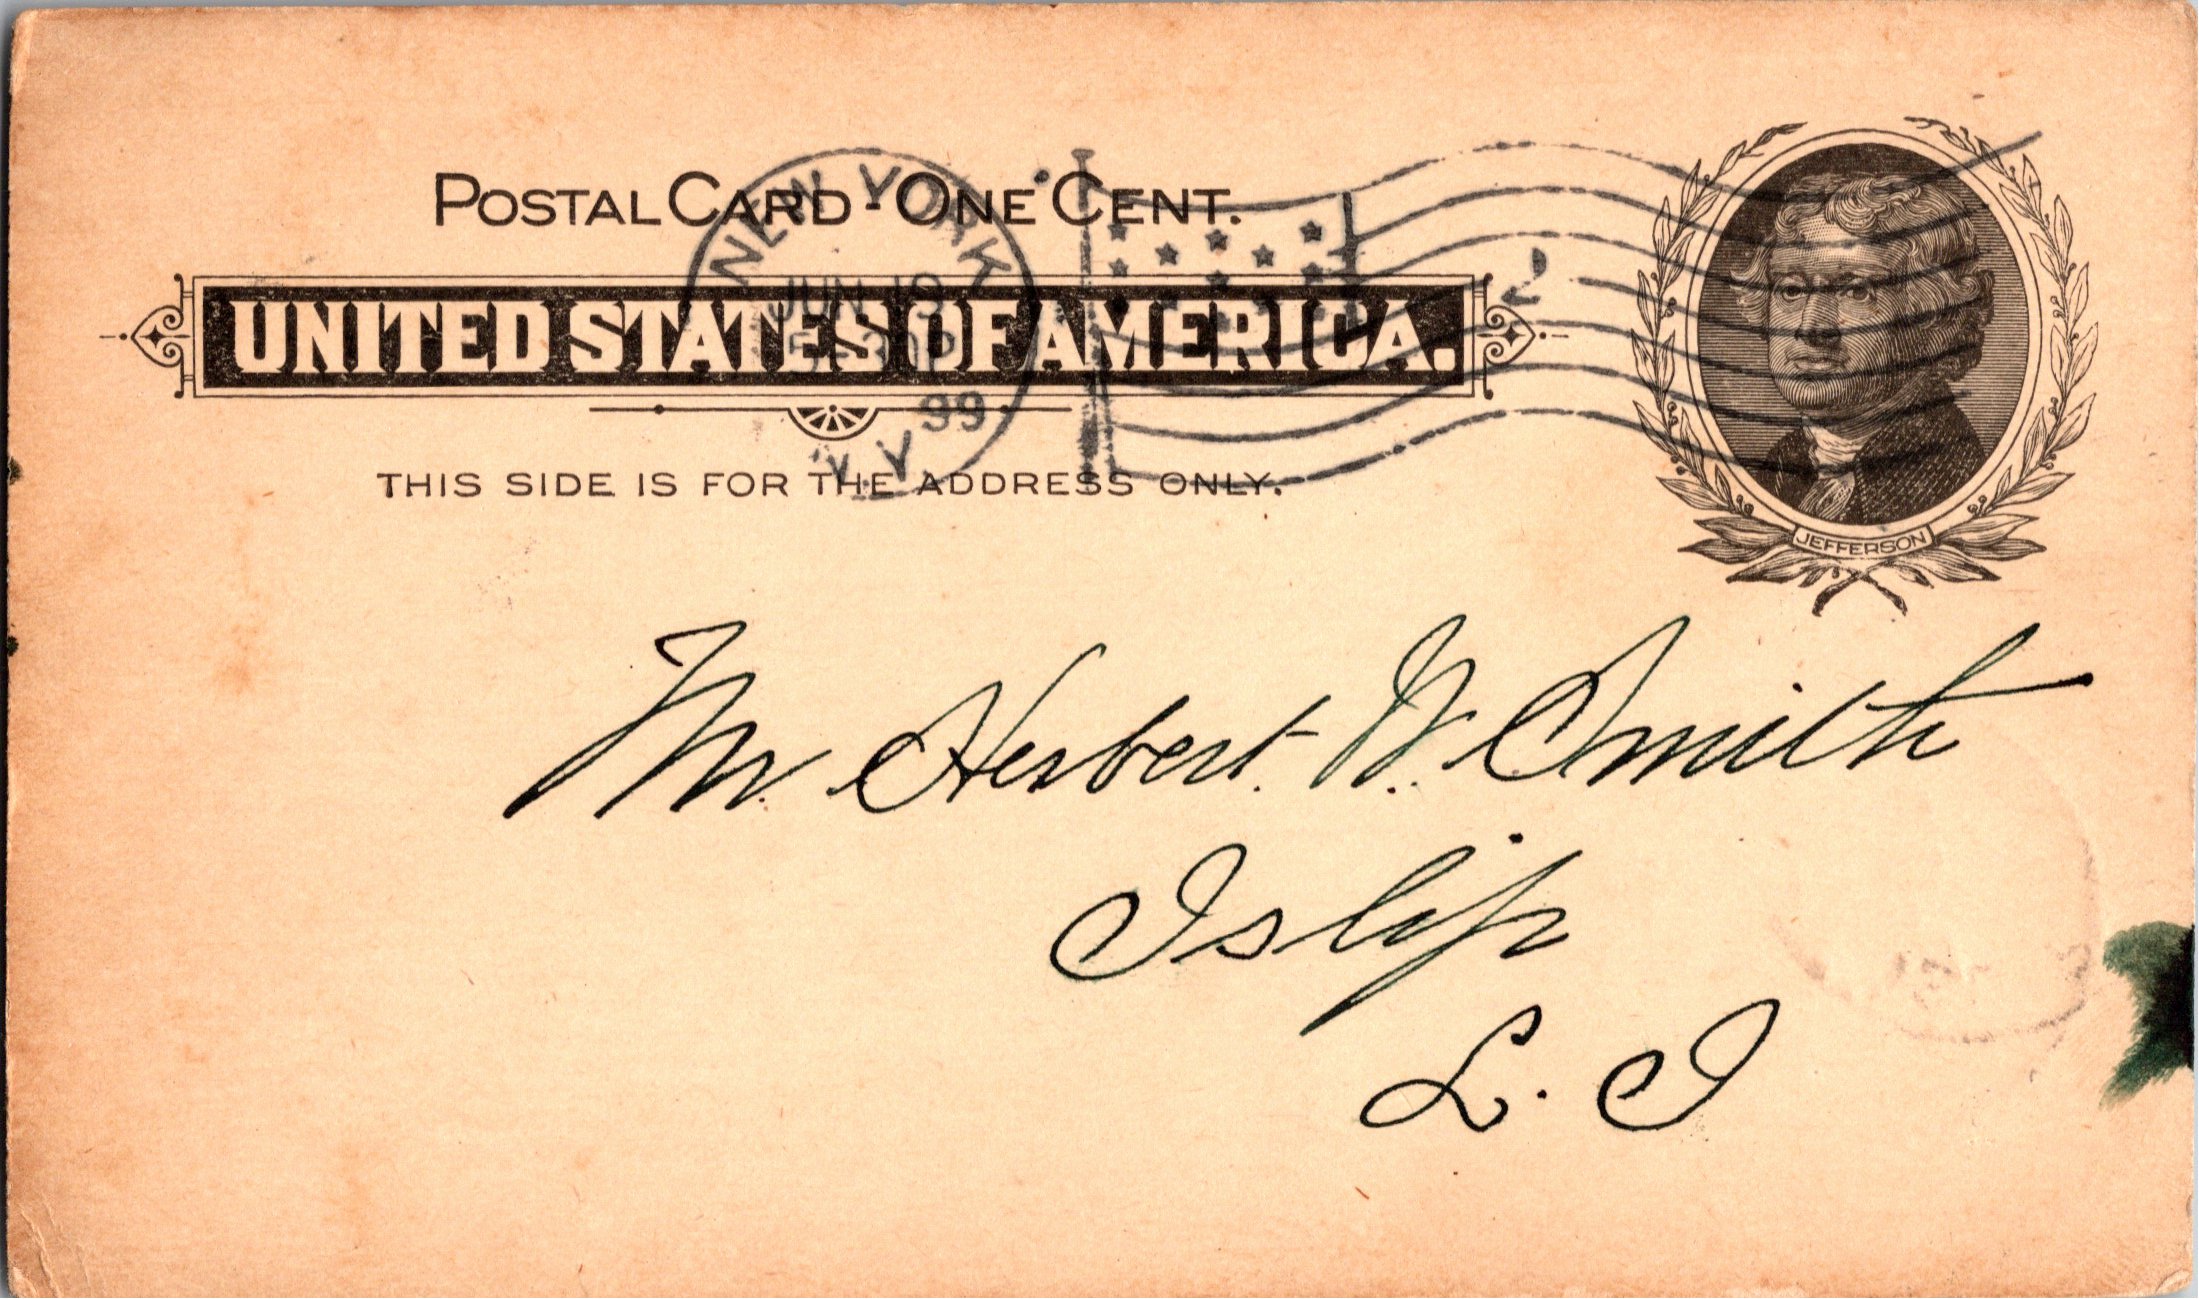 POSTAL CARD - ONE CENT.
UNITED STATES OF AMERICA.
THIS SIDE IS FOR THE ADDRESS ONLY.
NEW YORK
JUN 19
5-30P
99
N.Y.
JEFFERSON
Mr. Herbert. W. Smith
Islip
L. I